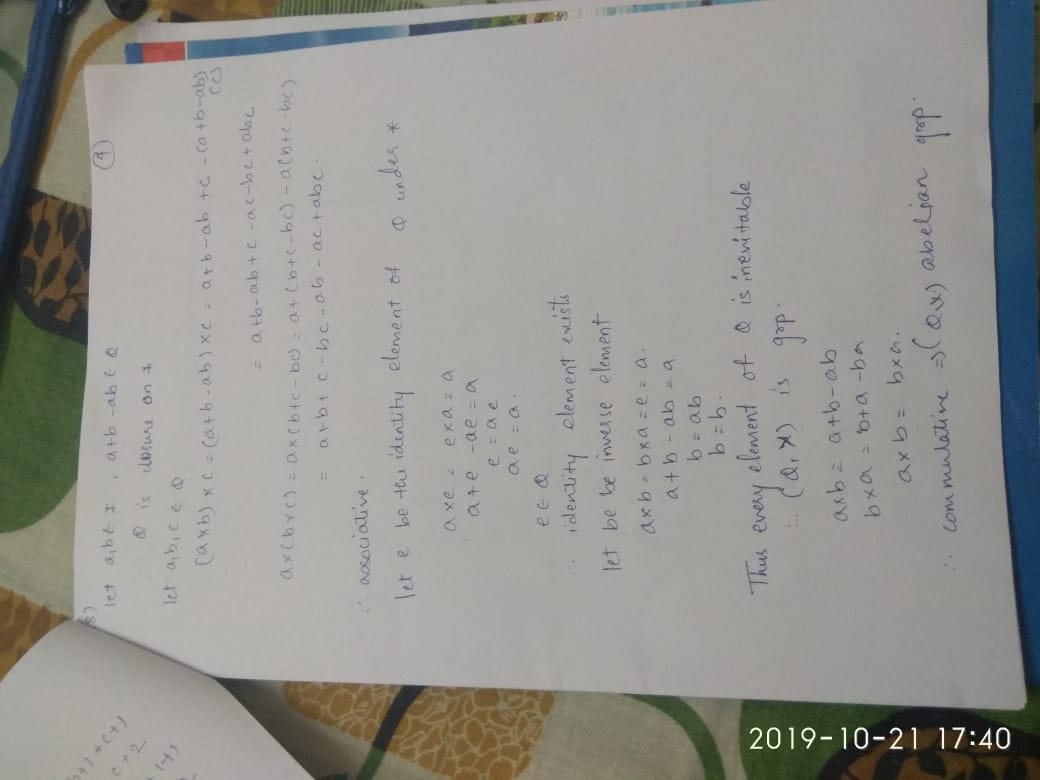 8)
let a,b ∈ I , a+b -ab ∈ Q
④
∴ Q is closure on *
let a,b,c ∈ Q
(a*b) * c = (a+b -ab) * c = a+b-ab +c -(a+b-ab)
(c)
= a+b-ab+c -ac-bc+abc
a*(b*c) = a*(b+c -bc) = a+(b+c-bc) - a(b+c-bc)
= a+b+ c -bc -ab - ac +abc.
∴ associative.
let e be the identity element of Q under *
a*e = e*a = a
a+e -ae = a
e = ae
ae = a.
e ∈ Q
∴ identity element exists
let be be inverse element
a*b = b*a = e = a.
a+b - ab = a
b = ab
b = b.
Thus every element of Q is inevitable
∴ (Q, *) is grp.
a*b = a+b-ab
b*a = b+a -ba
a*b = b*a.
∴ commulative ⇒ (Q,*) abelian grp.
c+2
2019-10-21 17:40